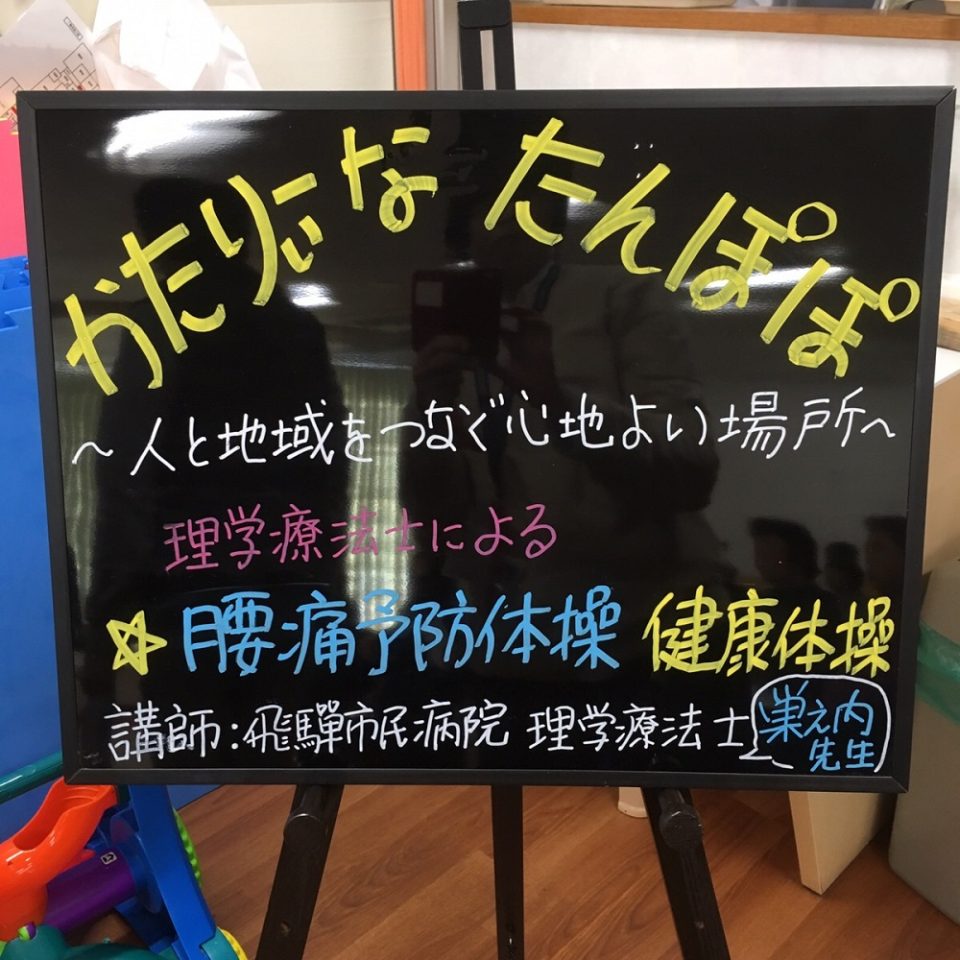 かたりぃな たんぽぽ
～人と地域をつなぐ心地よい場所～
理学療法士による
☆腰痛予防体操 健康体操
講師:飛騨市民病院 理学療法士 巣之内先生